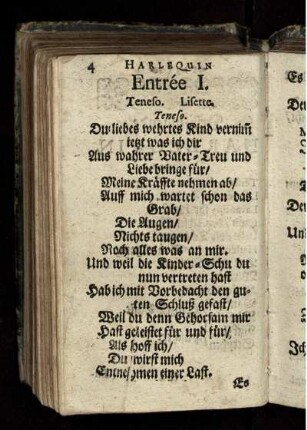 4 HARLEQUIN
Entrée I.
Teneso. Lisette.
Teneso.
Du liebes wehrtes Kind vernim̅
ietzt was ich dir
Aus wahrer Vater-Treu und
Liebe bringe für/
Meine Kräffte nehmen ab/
Auff mich wartet schon das
Grab/
Die Augen/
Nichts taugen/
Noch alles was an mir.
Und weil die Kinder-Schu du
nun vertreten hast
Hab ich mit Vorbedacht den gu-
ten Schluß gefast/
Weil du denn Gehorsam mir
Hast geleistet für und für/
Als hoff ich/
Du wirst mich
Entnehmen einer Last.
Es
Es